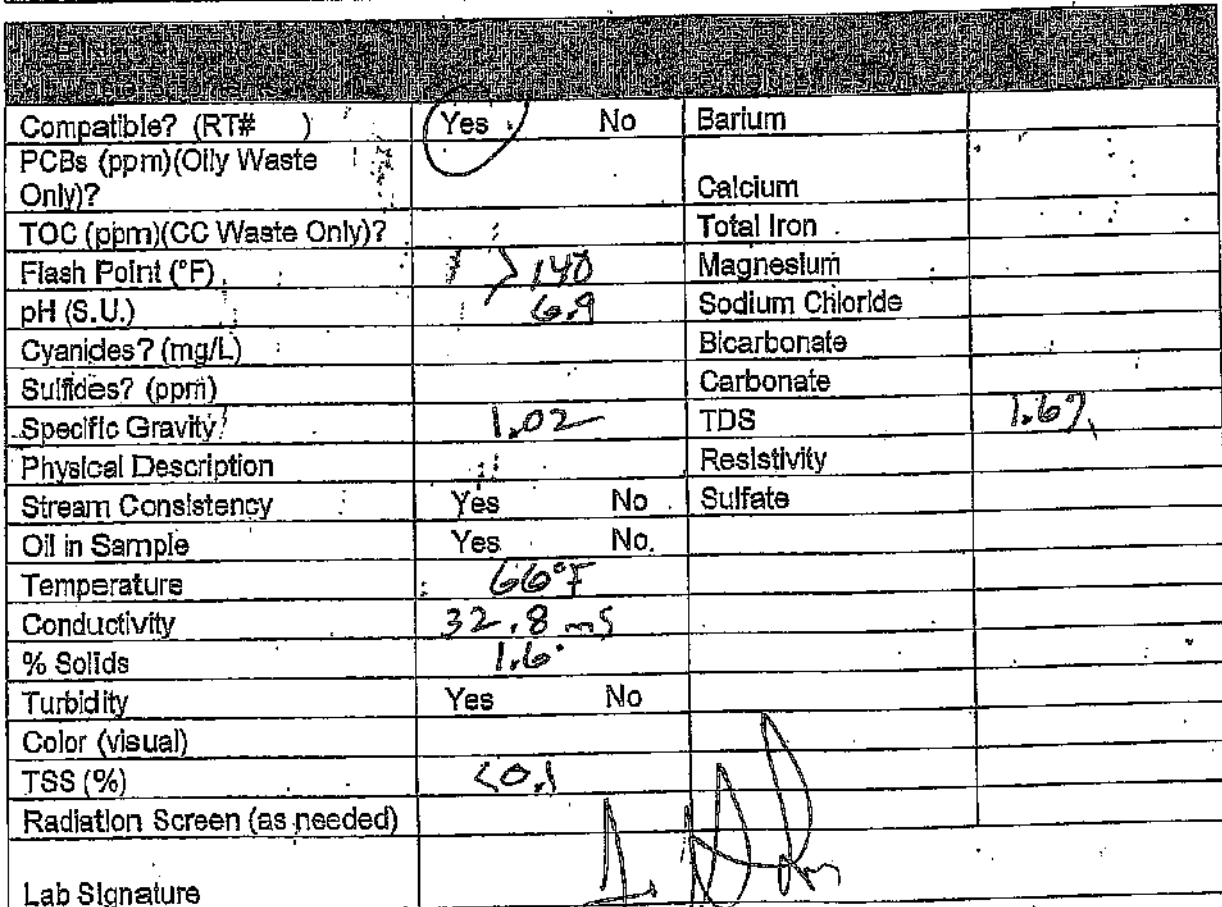 Compatible? (RT# ) Yes No Barium
PCBs (ppm)(Oily Waste Only)? Calcium
TOC (ppm)(CC Waste Only)? Total Iron
Flash Point (°F) >140 Magnesium
pH (S.U.) 6.9 Sodium Chloride
Cyanides? (mg/L) Bicarbonate
Sulfides? (ppm) Carbonate
Specific Gravity 1.02 TDS 1.6%
Physical Description Resistivity
Stream Consistency Yes No Sulfate
Oil in Sample Yes No
Temperature 66°F
Conductivity 32.8 mS
% Solids 1.6
Turbidity Yes No
Color (visual)
TSS (%) <0.1
Radiation Screen (as needed)
Lab Signature